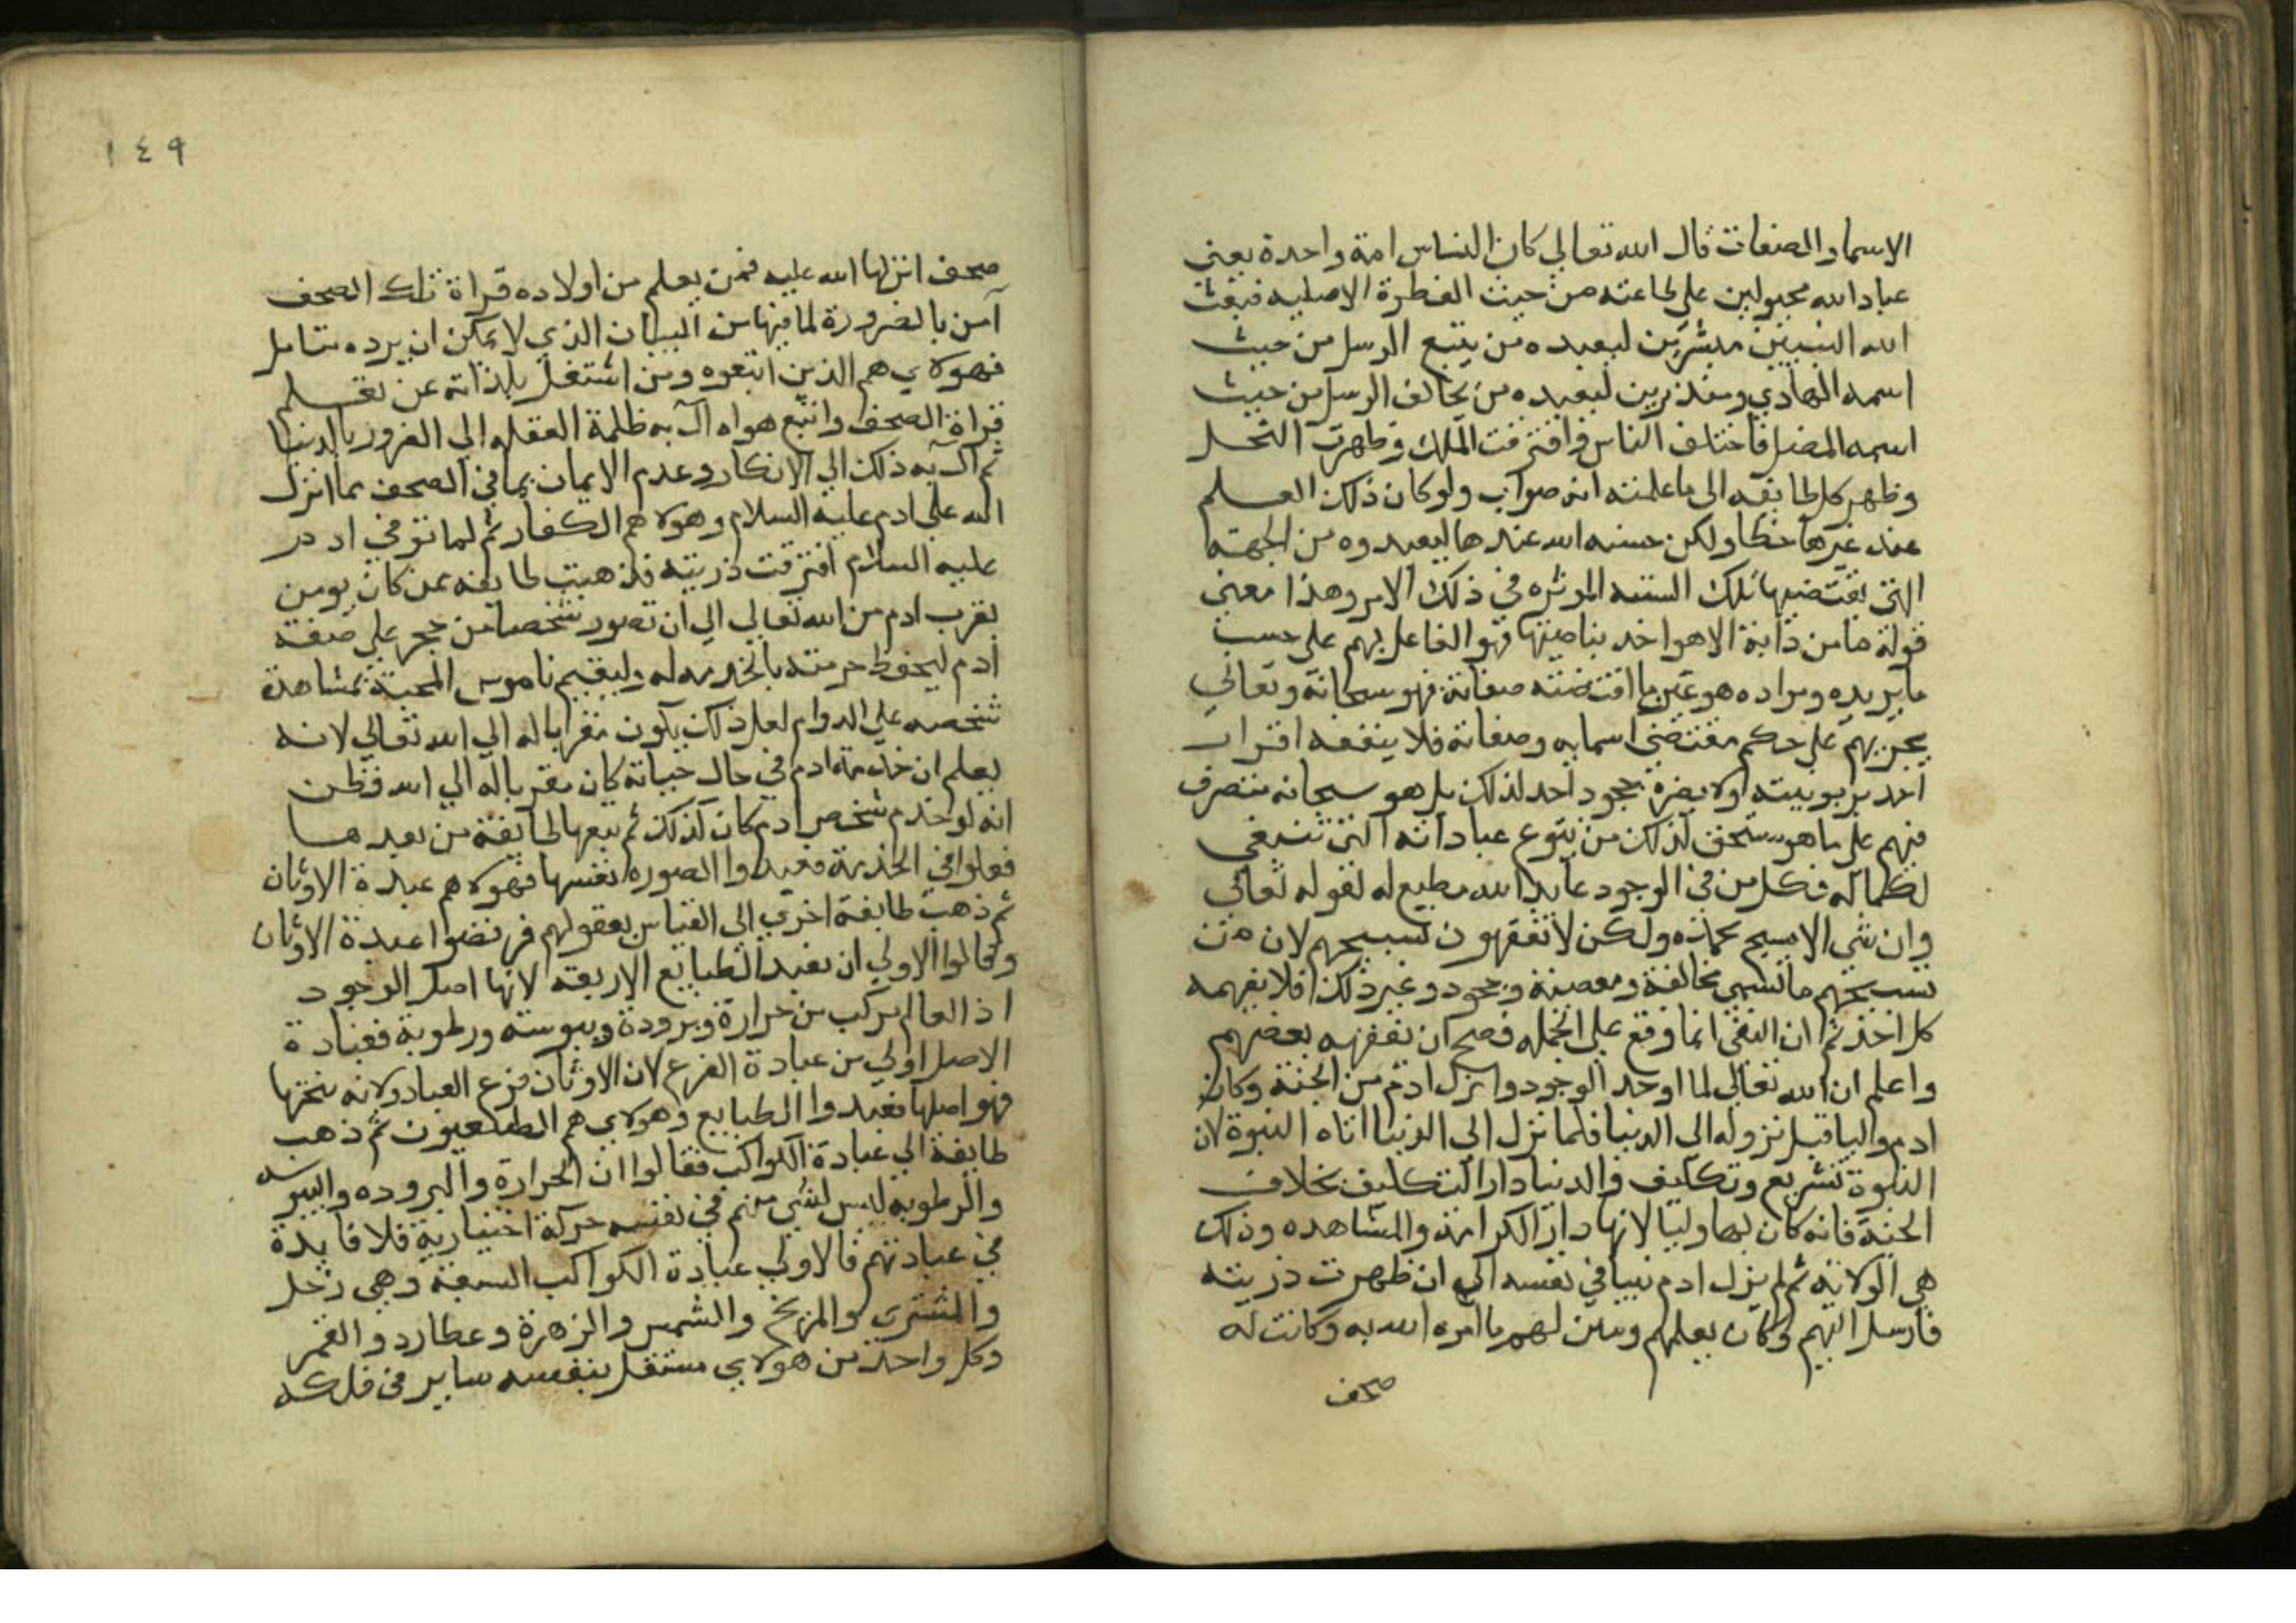 الاسما والصفات قال الله تعالي كان الناس امة واحدة يعني
عباد الله مجبولين علي طاعته من حيث الفطرة الاصليه فبعث
الله النبيين مبشرين ليعبده من يتبع الرسل من حيث
اسمه الهادي ومنذرين ليعبده من يخالف الرسل من حيث
اسمه المضل فاختلف الناس وافترقت الملل وظهرت النحل
وظهر كل طايفه الي ما علمته انه صواب ولو كان ذلك العلم
عند غيرها خطا ولكن حسنه الله عندها ليعبدوه من الجهة
التي تقتضيها تلك الموثره في ذلك الامر وهذا معني
قوله ما من دابة الا هو اخذ بناصيتها فهو الفاعل بهم علي حسب
ما يريده ومراده هو عين ما اقتضته صفاته فهو سبحانه وتعالي
يجزيهم علي حكم مقتضي اسمايه وصفاته فلا ينفعه اقرار
احد بربوبيته ولا يضره جحود احد لذلك بل هو سبحانه متصرف
فيهم علي ما هو مستحق لذلك من تنوع عباداته التي تنبغي
لكماله فكل من في الوجود عابد الله مطيع له لقوله تعالي
وان شي الا يسبح بحمده ولكن لا تفقهون تسبيحهم لان من
تسبيحهم ما تسمي مخالفة ومعصية وجحود وغير ذلك فلا يفهمه
كل احد ثم ان النفي انما وقع علي الجمله فصح ان تفقهه بعضهم
واعلم ان الله تعالي لما اوجد الوجود وانزل ادم من الجنة وكان
ادم وليا قبل نزوله الي الدنيا فلما نزل الي الدنيا اتاه النبوة لان
النبوة تشريع وتكليف والدنيا دار التكليف بخلاف
الجنة فانه كان بها وليا لانها دار الكرامة والمشاهده وذلك
هي الولاية ثم لم يزل ادم نبيا في نفسه الي ان ظهرت ذريته
فارسل اليهم وكان يعلمهم وبين لهم ما امره الله به وكانت له
صحف
١٤٩
صحف انزلها الله عليه فمن يعلم من اولاده قراة تلك الصحف
آمن بالضرورة لما فيها من البيان الذي لا يمكن ان يرده متامل
فهولاي هم الذين اتبعوه ومن اشتغل بلذاته عن تعلم
قراة الصحف واتبع هواه آل به ظلمة الغفله الي الغرور بالدنيا
ثم آل به ذلك الي الانكار وعدم الايمان بما في الصحف مما انزل
الله علي ادم عليه السلام وهولا هم الكفار ثم لما توفي ادم
عليه السلام افترقت ذريته فذهبت طايفه ممن كان يومن
بقرب ادم من الله تعالي الي ان تصور شخصا من حجر علي صفة
ادم ليحفظ حرمته بالخدمه له وليقيم ناموس المحبة بمشاهدة
شخصه علي الدوام لعل ذلك يكون مقربا له الي الله تعالي لانه
يعلم ان خدمة ادم في حال حياته كان مقربا له الي الله فظن
انه لو خدم شخص ادم كان كذلك ثم تبعها طايفة من بعدها
فعلوا في الخدمة فعبدوا الصوره نفسها فهولا هم عبدة الاوثان
ثم ذهبت طايفة اخري الي القياس بعقولهم فرفضوا عبدة الاوثان
وقالوا الاولي ان نعبد الطبايع الاربعه لانها اصل الوجود
اذ العالم مركب من حرارة وبرودة ويبوسته ورطوبة فعبادة
الاصل اولي من عبادة الفرع لان الاوثان فرع العباد ولانه ينحتها
فهو اصلها فعبدوا الطبايع وهولاي هم الطبيعيون ثم ذهب
طايفة الي عبادة الكواكب فقالوا ان الحرارة والبروده واليبوسه
والرطوبه ليس لشي منهم في نفسه حركة اختيارية فلا فايدة
في عبادتهم فالاولي عبادة الكواكب السبعة وهي زحل
والمشتري والمريخ والشمس والزهرة وعطارد والقمر
وكل واحد من هولاي مستقل بنفسه ساير في فلكه